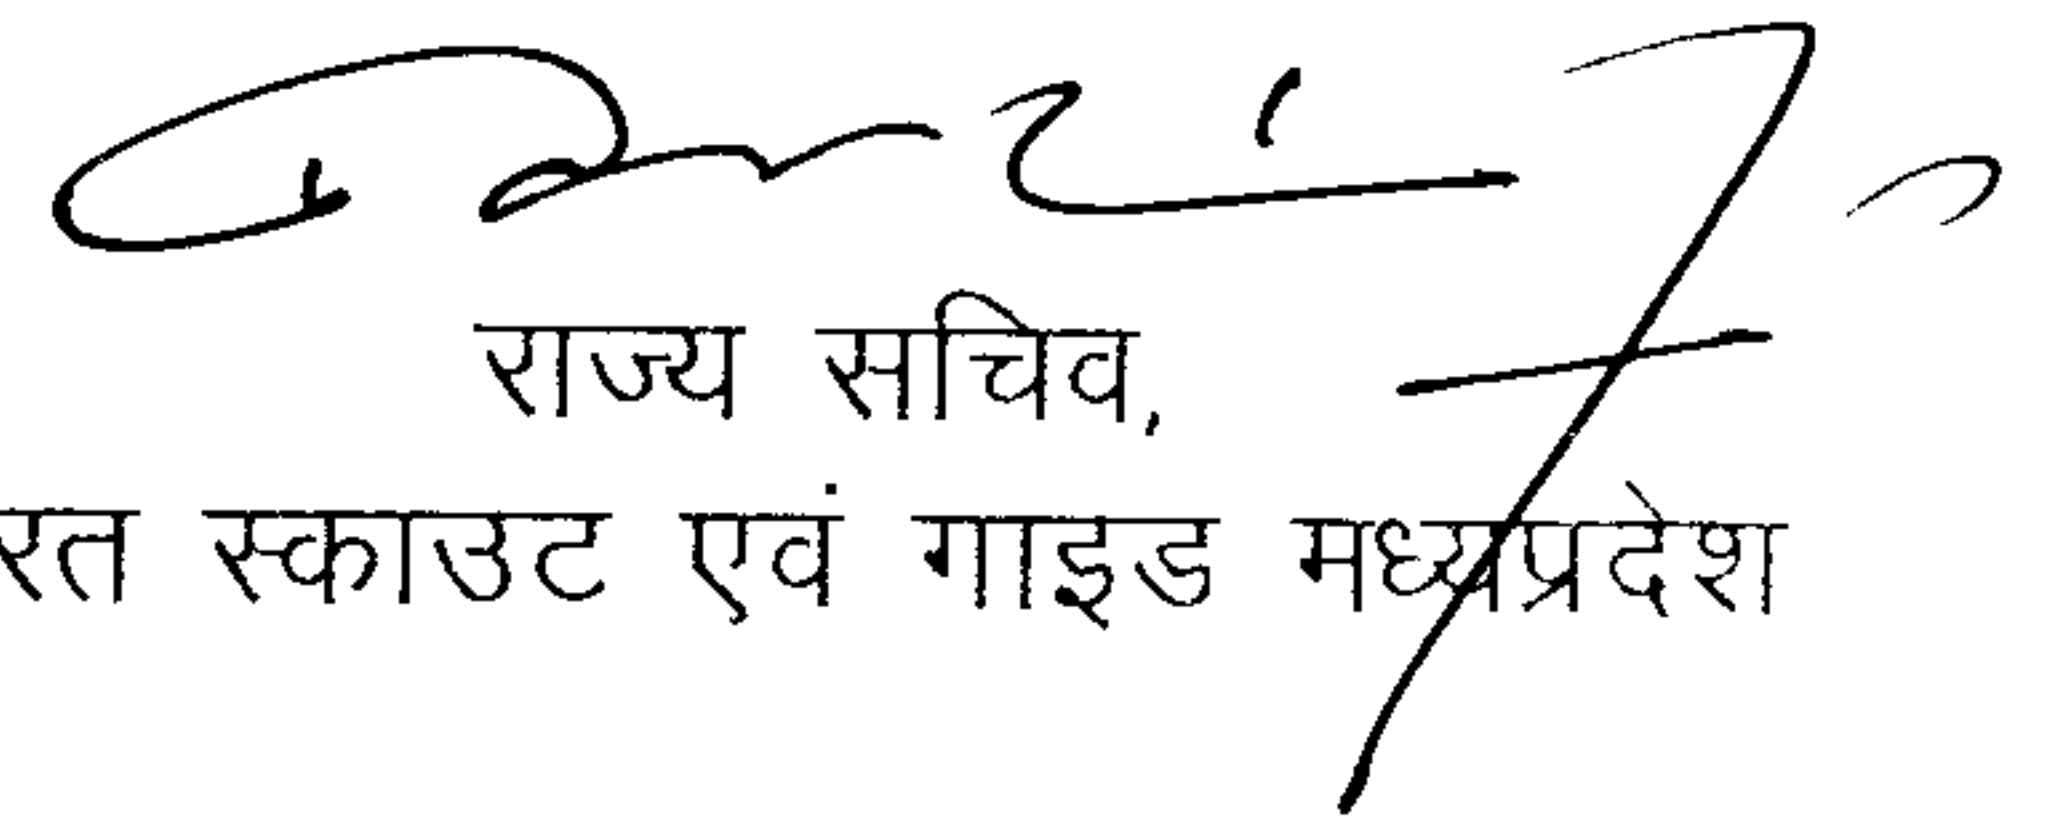 राज्य सचिव,
रत स्काउट एवं गाइड मध्यप्रदेश